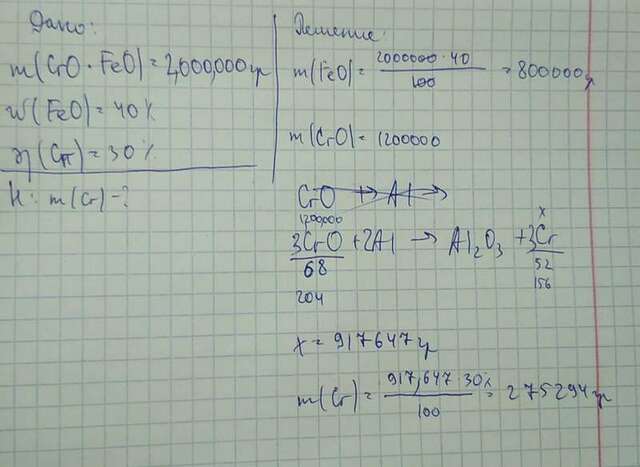 Дано:
m(CrO · FeO) = 2,000,000 гр
w(FeO) = 40%
η(Cr) = 30%
Н: m(Cr) - ?
Решение:
m(FeO) = 2000000 · 40 / 100 = 800000 г
m(CrO) = 1200000
CrO + Al →
1200000 x
3CrO + 2Al → Al₂O₃ + 3Cr
68 52
204 156
x = 917647 гр
m(Cr) = 917,647 · 30% / 100 = 275294 гр